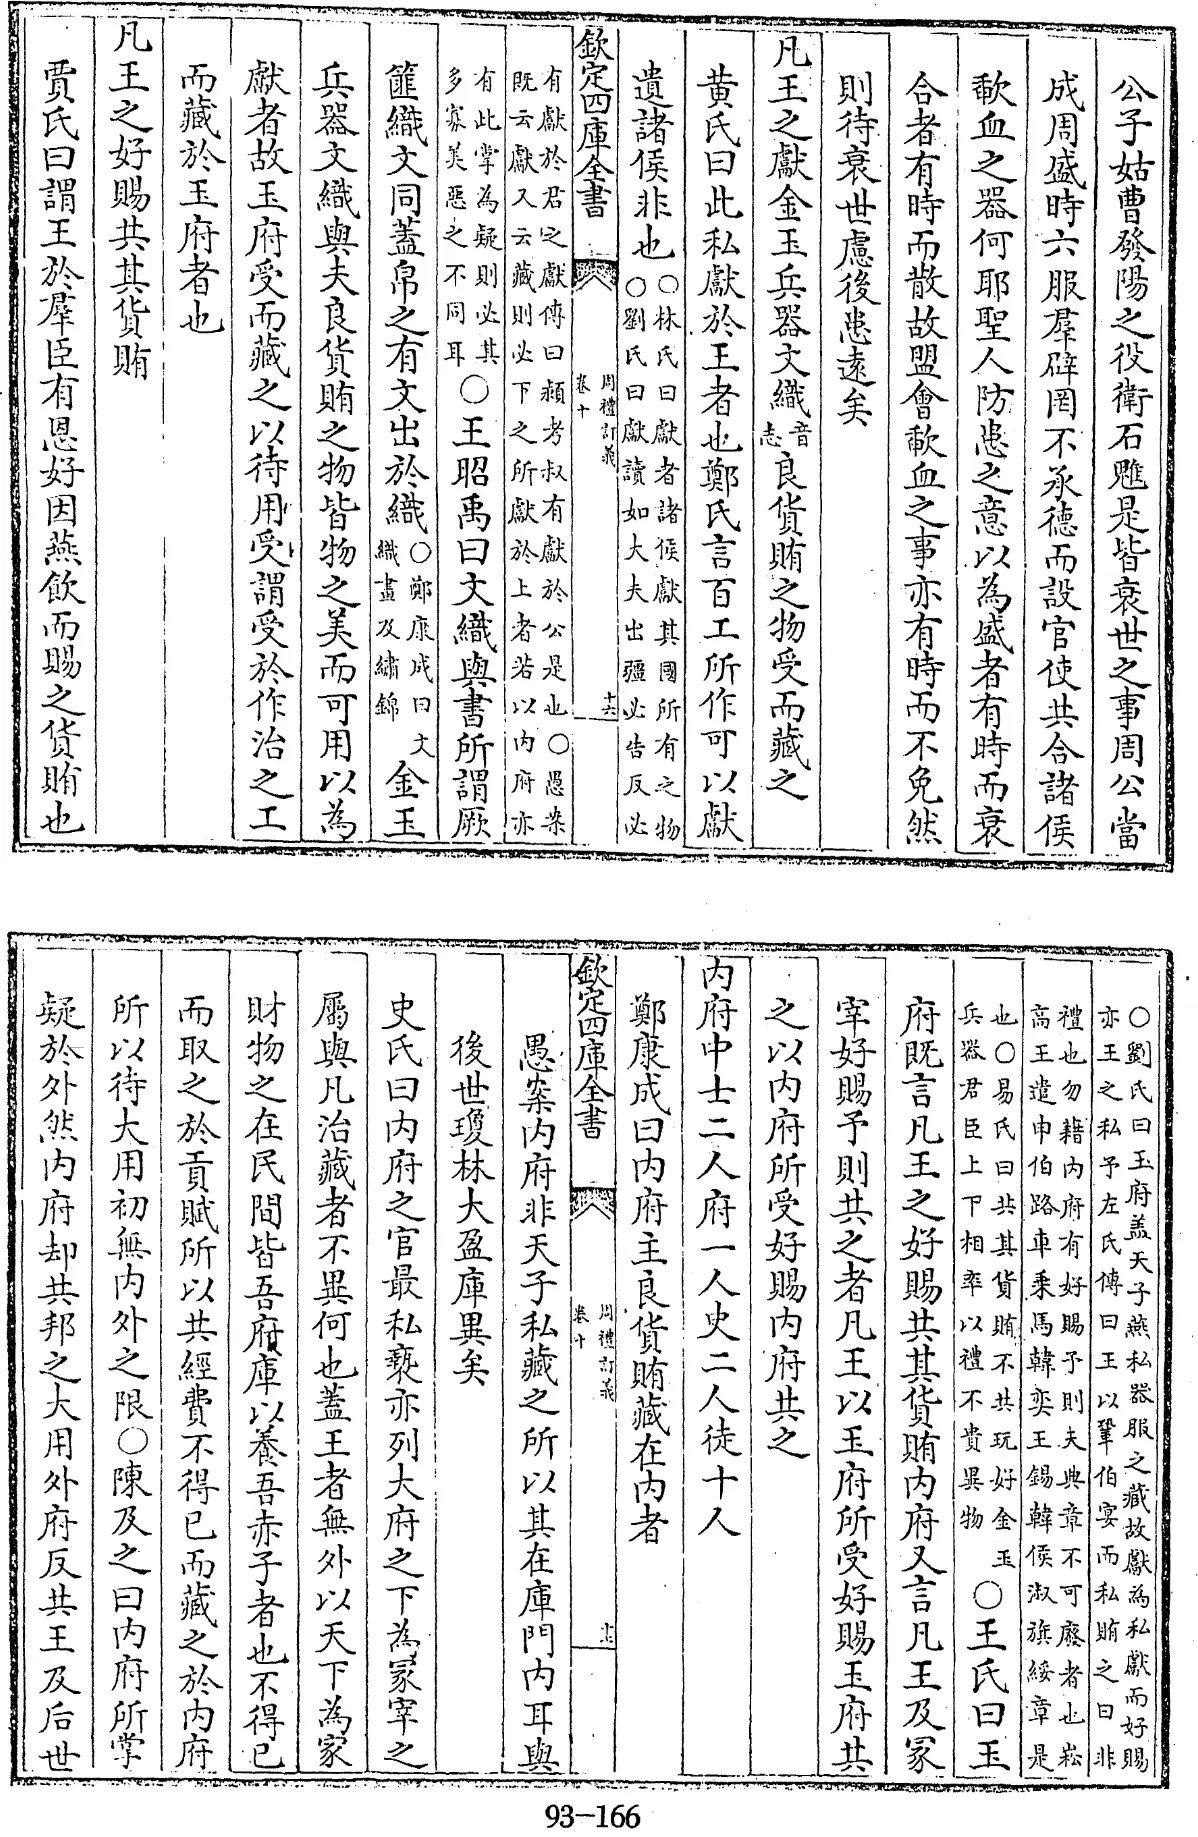 公子姑曹發陽之役衛石魋是皆衰世之事周公當
成周盛時六服羣辟罔不承德而設官使共合諸侯
歃血之器何耶聖人防患之意以為盛者有時而衰
合者有時而散故盟會歃血之事亦有時而不免然
則待衰世慮後患遠矣
凡王之獻金玉兵器文織音志良貨賄之物受而藏之
黄氏曰此私獻於王者也鄭氏言百工所作可以獻
遺諸侯非也○林氏曰獻者諸侯獻其國所有之物○劉氏曰獻讀如大夫出疆必告反必
欽定四庫全書
周禮訂義
卷十
十六
有獻於君之獻傳曰頴考叔有獻於公是也○愚案既云獻又云藏則必下之所獻於上者若以内府亦
有此掌為疑則必其多寡美惡之不同耳○王昭禹曰文織與書所謂厥
篚織文同蓋帛之有文出於織○鄭康成曰文織畫及繡錦金玉
兵器文織與夫良貨賄之物皆物之美而可用以為
獻者故玉府受而藏之以待用受謂受於作治之工
而藏於玉府者也
凡王之好賜共其貨賄
賈氏曰謂王於羣臣有恩好因燕飲而賜之貨賄也
○劉氏曰玉府蓋天子燕私器服之藏故獻為私獻而好賜亦王之私予左氏傳曰王以鞏伯宴而私賄之曰非
禮也勿籍内府有好賜予則夫典章不可廢者也崧高王遣申伯路車乘馬韓奕王錫韓侯淑旂綏章是
也○易氏曰共其貨賄不共玩好金玉兵器君臣上下相率以禮不貴異物○王氏曰玉
府既言凡王之好賜共其貨賄内府又言凡王及冢
宰好賜予則共之者凡王以玉府所受好賜玉府共
之以内府所受好賜内府共之
内府中士二人府一人史二人徒十人
鄭康成曰内府主良貨賄藏在内者
欽定四庫全書
周禮訂義
卷十
十七
愚案内府非天子私藏之所以其在庫門内耳與
後世瓊林大盈庫異矣
史氏曰内府之官最私褻亦列大府之下為冢宰之
屬與凡治藏者不異何也蓋王者無外以天下為家
財物之在民間皆吾府庫以養吾赤子者也不得已
而取之於貢賦所以共經費不得已而藏之於内府
所以待大用初無内外之限○陳及之曰内府所掌
疑於外然内府却共邦之大用外府反共王及后世
93-166